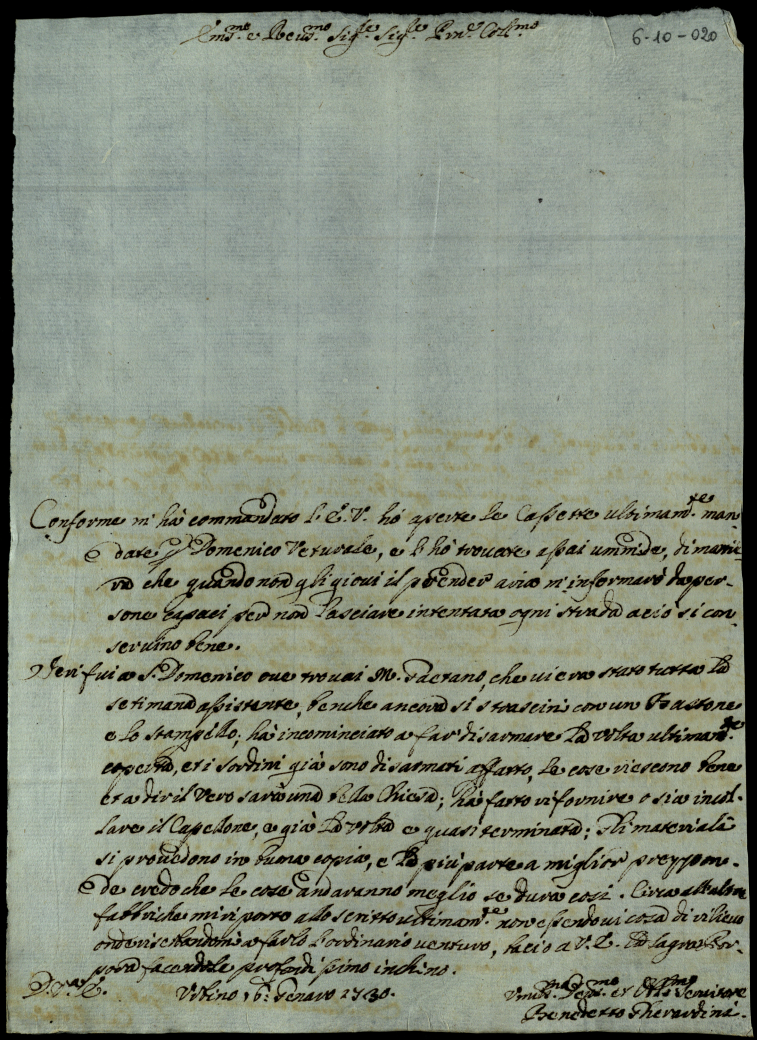 Em.mo e Reu.mo Sig.re Sig.re Prn.e Coll.mo
6-10-020
Conforme m' hà commandato l' E. V. hò aperte le Cassette ultimam.te man-
date p Domenico Veturale, e l' hò trouate assai ummide, di manie-
ra che quando non gli gioui il prender aria m' informarò da per-
sone capaci per non lasciare intentata ogni strada acio si con-
seruino bene.
Ieri fui a S. Domenico oue trouai M. Gaetano, che ui era stato tutta la
setimana assistente, benche ancora si strascini con un Bastone
e lo stampello, hà incominciato a far disarmare la Volta ultimam.te
coperta, et i sordini già sono disarmati affatto, le cose riescono bene
et a dir il Vero sarà una bella Chiesa; hà fatto rifornire o sia incol-
lare il Capellone, e già la Volta e quasi terminata; Gli materiali
si prouedono in buona copia, e la più parte a miglior prezzo on-
de credo che le cose andaranno meglio se dura così. Circa all'altre
fabbriche mi riporto allo scritto ultimam.te non essendoui cosa di rilieuo
onde riserbandomi a farlo l' ordinario uenturo, bacio a V. E. la Sagra Por-
pora facendole profondissimo inchino.
D. V.ra E.
Urbino 16: Genaro 1730.
Umil.mo Deu.mo et Obl.mo Seruitore
Benedetto Gherardini.